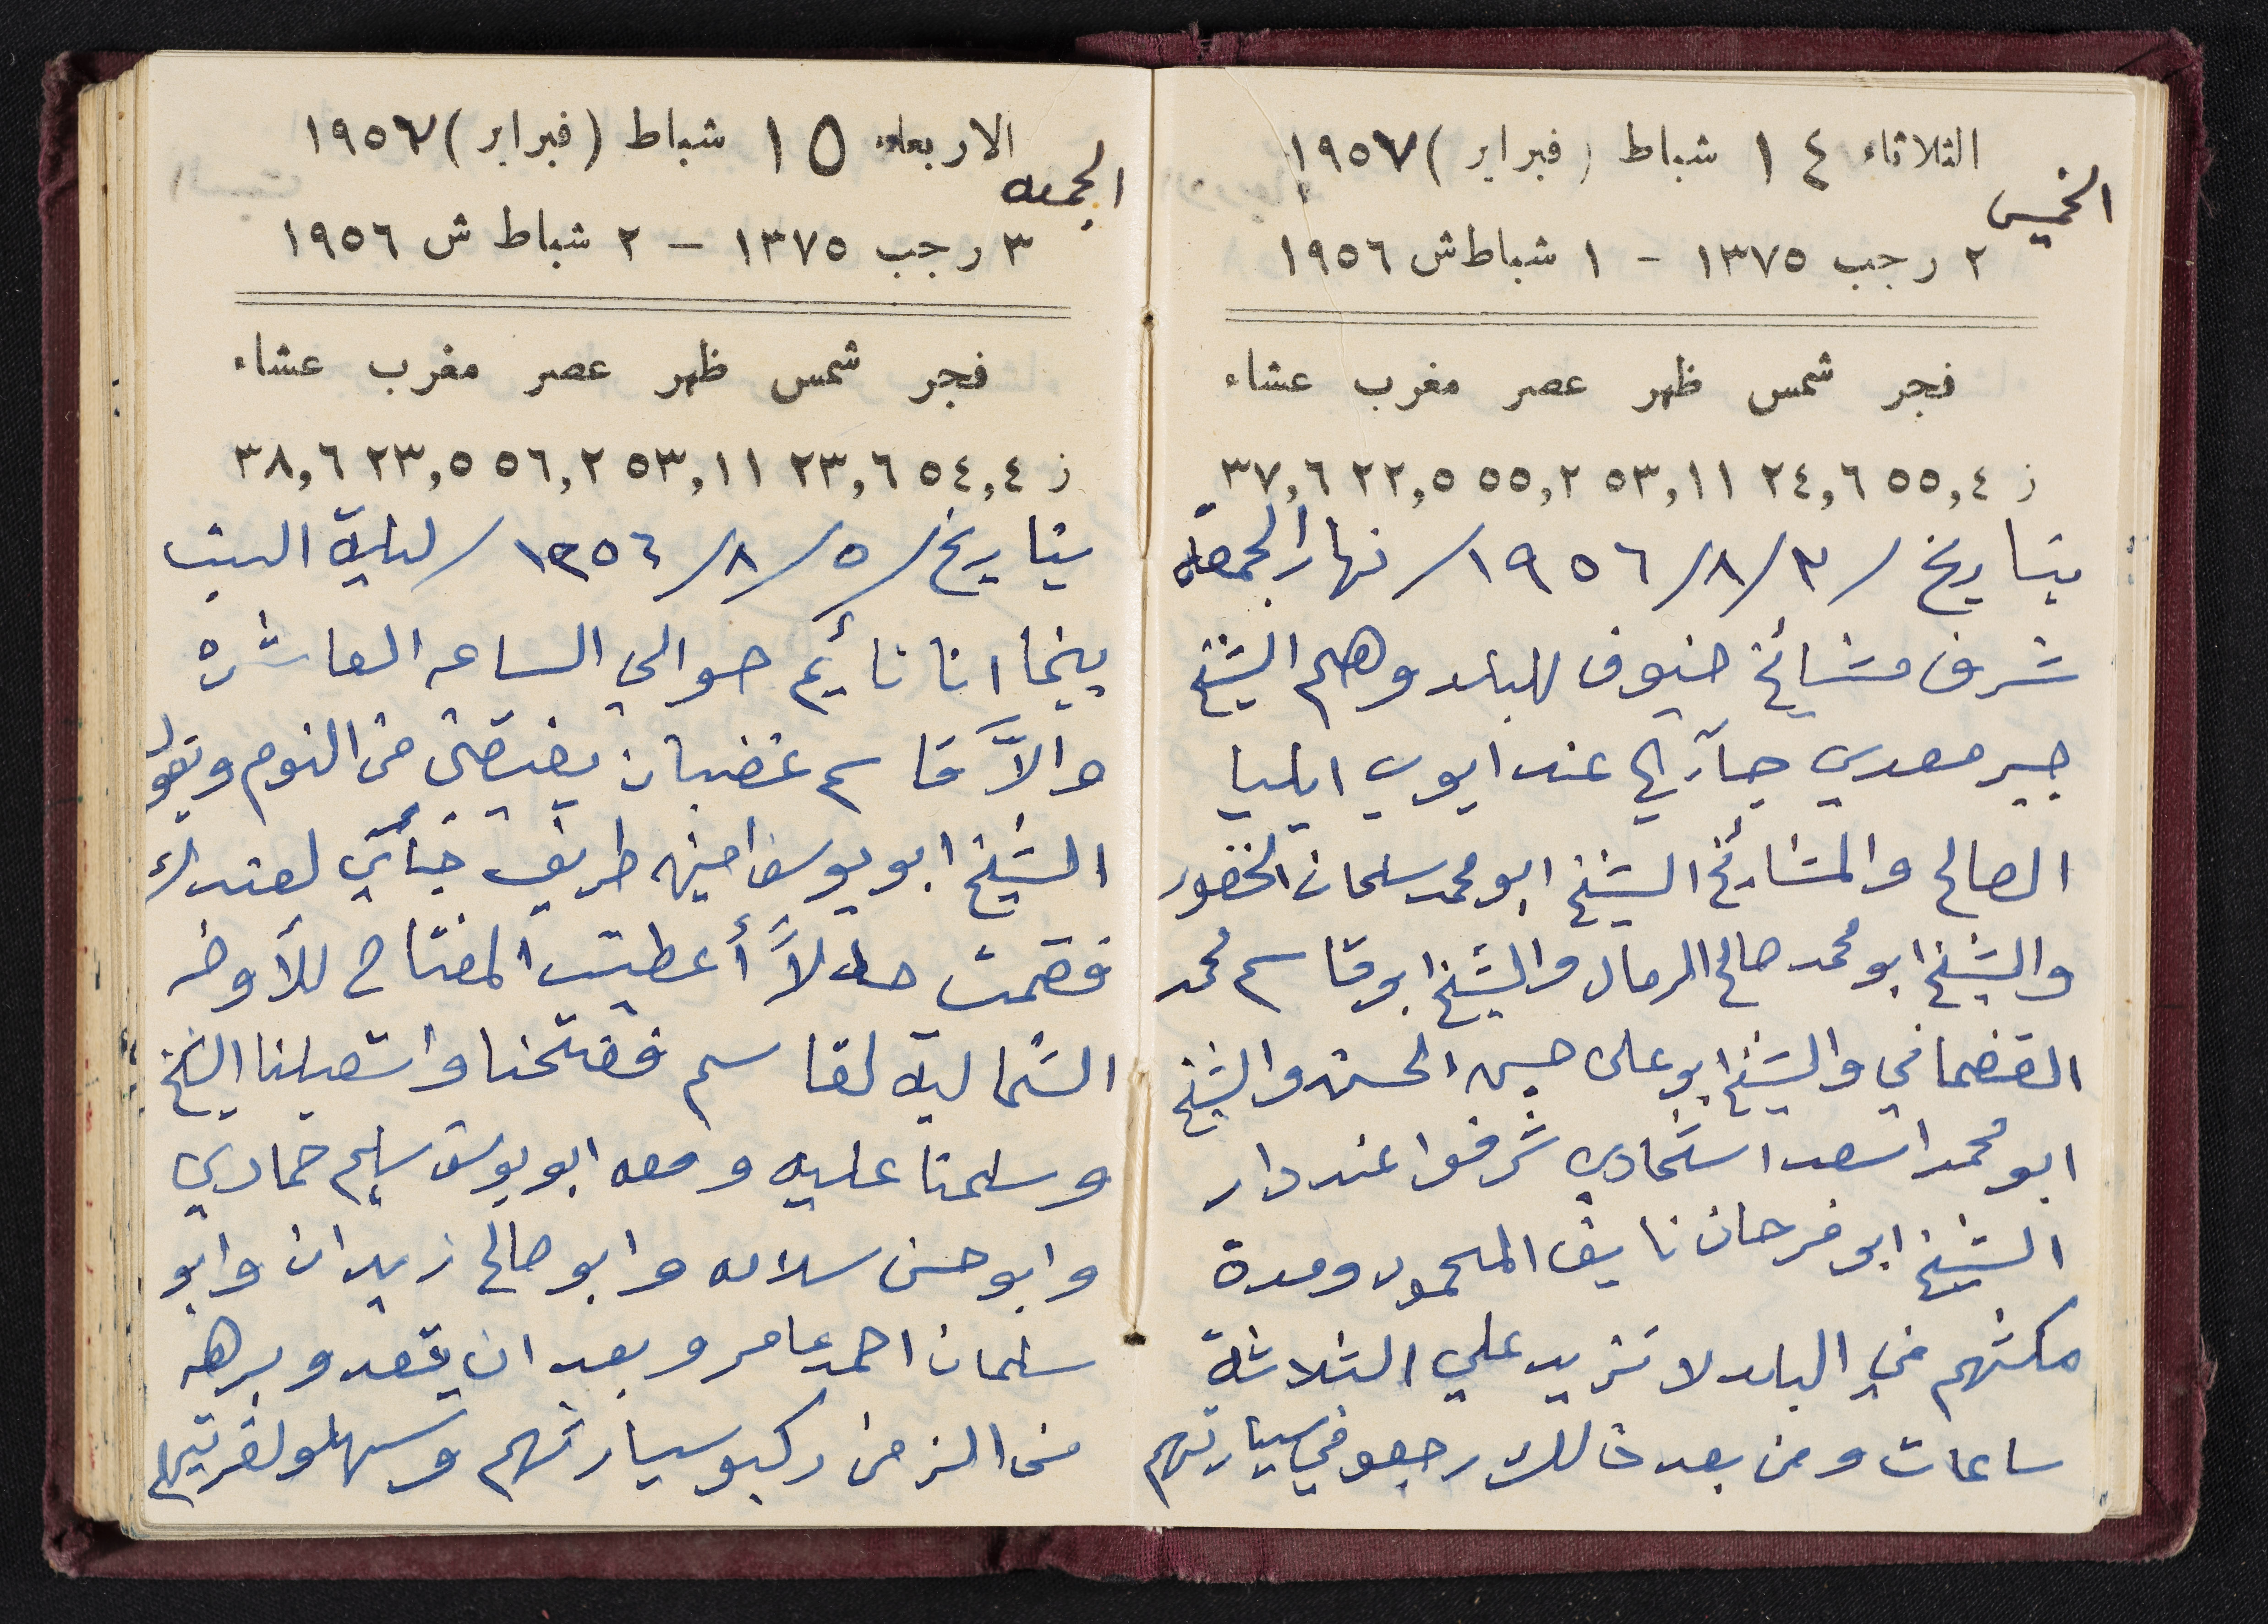 الثلاثاء ١٤ شباط (فبراير) ١٩٥٧
الخميس
٢ رجب ١٣٧٥ - ١ شباط ش ١٩٥٦
فجر شمس ظهر عصر مغرب عشاء
ز ٥٥,٤ ٢٤,٦ ٥٣,١١ ٥٥,٢ ٢٢,٥ ٣٧,٦
بتاريخ /٣/٨/١٩٥٦/ نهار الجمعة
شرف مشائخ ضيوف للبلد وهم الشيخ
جبر معدي جآ الي عند ايوب ايليا
الصالح والمشائخ الشيخ ابو محمد سلمان الخضور
والشيخ ابو محمد صالح الرمال والشيخ ابو قاسم محمد
القضماني والشيخ ابو علي حسين الحسن والشيخ
ابو محمد اسعد استحادي شرفوا عند دار
الشيخ ابو فرحان نايف المحمود ومدة
مكثهم في البلد لا تزيد علي الثلاثة
ساعات ومن بعد ذالك رجعو في سيارتهم
الاربعاء ١٥ شباط (فبراير) ١٩٥٧
الجمعه
٣ رجب ١٣٧٥ - ٢ شباط ش ١٩٥٦
فجر شمس ظهر عصر مغرب عشاء
ز ٥٤,٤ ٢٣,٦ ٥٣,١١ ٥٦,٢ ٢٣,٥ ٣٨,٦
بتاريخ /٥/٨/١٩٥٦/ ليلة السبت
بينما انا نائيم حوالي الساعه العاشره
والاَّ قاسم غضبان يفيقني من النوم ويقول
الشيخ ابو يوسف امين طريف جأي لعندك
فقمت حالاً أعطيت المفتاح للأوضه
الشماليه لقاسم ففتحنا واستقبلنا الشيخ
وسلمنا عليه ومعه ابو يوسف سليم حمادي
وابو حسن سلامه وابو صالح زيدان وابو
سلمان احمد عامر وبعد ان قعدو برهه
من الزمن ركبو سيارتهم وسهلو لقريتهم